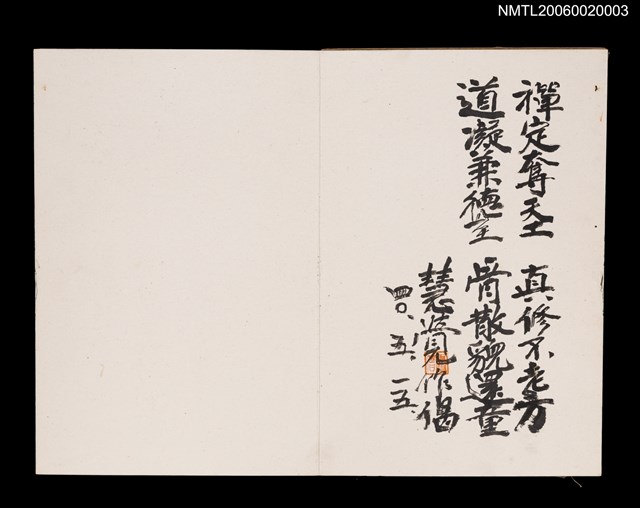 NMTL20060020003
禪定奪天工 真修不老方
道凝兼德至 骨散貌還童
慧 作偈
四〇.五.一五.